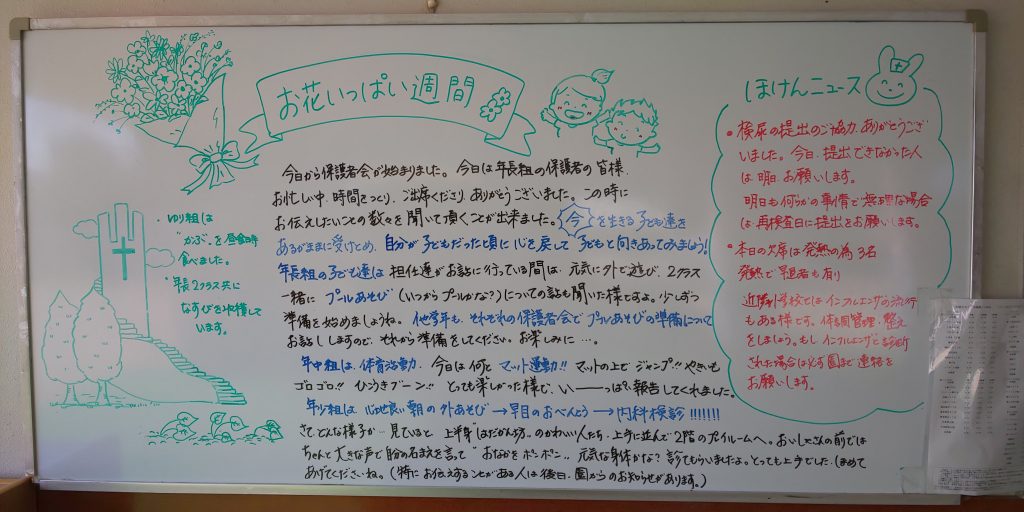 お花いっぱい週間
今日から保護者会が始まりました。今日は年長組の保護者の皆様、
お忙しい中、時間をつくり、ご出席くださり、ありがとうございました。この時に
お伝えしたいことの数々を聞いて頂くことが出来ました。今を生きる子ども達を
あるがままに受けとめ、自分が子どもだった頃に心を戻して子どもと向きあってみましょう!
年長組の子ども達は担任達がお話に行っている間は、元気に外で遊び、2クラス
一緒に プールあそび(いつからプールかな?)についての話も聞いた様ですよ。少しずつ
準備を始めましょうね。他学年も、それぞれの保護者会でプールあそびの準備について
お話ししますので、それから準備をしてください。お楽しみに…。
年中組は、体育活動。今日は何と マット運動!! マットの上で ジャンプ!! やきいも
ゴロゴロ!! ひこうきブーン!! とっても楽しかった様で、いーーっぱい報告してくれました。
年少組は 心地良い朝の外あそび→早目のおべんとう→内科検診!!!!!!!
さて、どんな様子か…見ていると、上半身"はだかん坊"のかわいい人たち、上手に並んで2階のプレイルームへ。おいしゃさんの前では
ちゃんと大きな声で自分の名まえを言って "おなかをポンポン"。元気な身体かな? 診てもらいましたよ。とっても上手でした。ほめて
あげてくださいね。(特にお伝えすることがある人は後日、園からのお知らせがあります。)
・ゆり組は
"かぶ"を昼食時
食べました。
・年長2クラス共に
なすびを収穫して
います。
ほけんニュース
・検尿の提出のご協力、ありがとうござ
いました。今日、提出できなかった人
は明日、お願いします。
明日も何らかの事情で無理な場合
は、再検査日に提出をお願いします。
・本日の欠席は発熱の為 3名
発熱で早退者も有り
近隣小学校では インフルエンザの流行
もある様です。体調管理・整え
をしましょう。もし インフルエンザと診断
された場合は必ず園まで連絡を
お願いします。